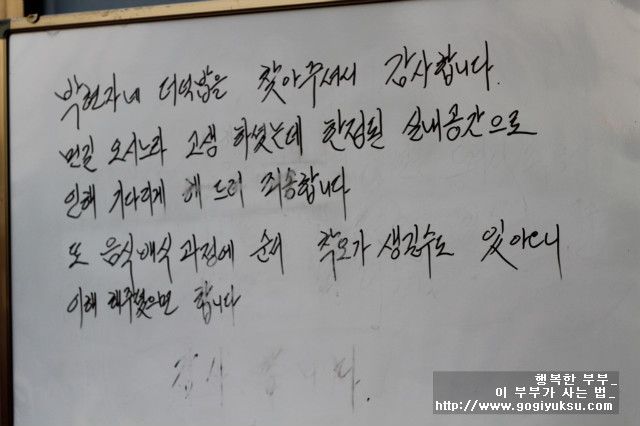 박현자네 더덕밥을 찾아주셔서 감사합니다.
먼길 오시느라 고생 하셨는데 한정된 실내공간으로
인해 기다리게 해 드려 죄송합니다
또 음식배식 과정에 순서 착오가 생길수도 있아오니
이해 해주셨으면 합니다
감사합니다.
행복한 부부_
이 부부가 사는 법_
http://www.gogiyuksu.com